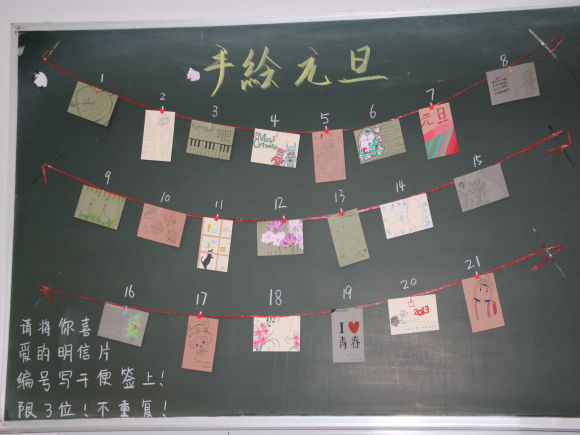 手绘元旦
1
2
3
4
5
6
7
8
元旦
9
10
11
12
13
14
15
16
17
18
19
20
21
I ❤
青春
2013
请将你喜
爱的明信片
编号写于便签上!
限3位!不重复!